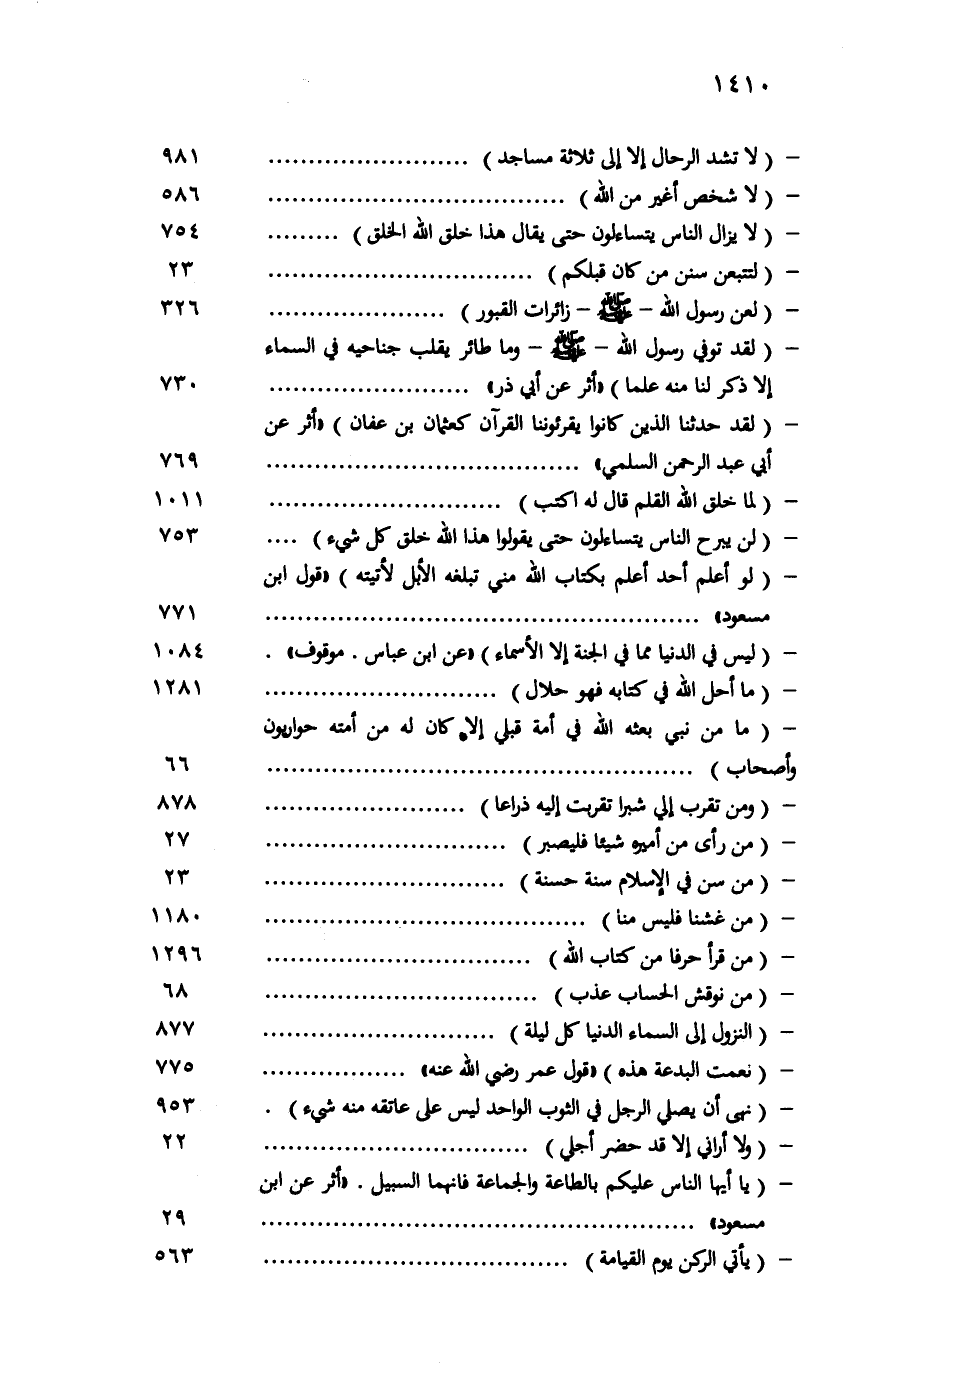 ١٤١٠
– ( لا تشد الرحال إلا إلى ثلاثة مساجد ) ......................... ٩٨١
– ( لا شخص أغير من الله ) ..................................... ٥٨٦
– ( لا يزال الناس يتساءلون حتى يقال هذا خلق الله الخلق ) ......... ٧٥٤
– ( لتتبعن سنن من كان قبلكم ) ................................. ٢٣
– ( لعن رسول الله – ﷺ – زائرات القبور ) ...................... ٣٢٦
– ( لقد توفي رسول الله – ﷺ – وما طائر يقلب جناحيه في السماء
إلا ذكر لنا منه علما ) «أثر عن أبي ذر» ......................... ٧٣٠
– ( لقد حدثنا الذين كانوا يقرئوننا القرآن كعثمان بن عفان ) «أثر عن
أبي عبد الرحمن السلمي» ....................................... ٧٦٩
– ( لما خلق الله القلم قال له اكتب ) ............................. ١٠١١
– ( لن يبرح الناس يتساءلون حتى يقولوا هذا الله خلق كل شيء ) .... ٧٥٣
– ( لو أعلم أحد أعلم بكتاب الله مني تبلغه الأبل لأتيته ) «قول ابن
مسعود» ...................................................... ٧٧١
– ( ليس في الدنيا مما في الجنة إلا الأسماء ) «عن ابن عباس . موقوف» . ١٠٨٤
– ( ما أحل الله في كتابه فهو حلال ) ............................. ١٢٨١
– ( ما من نبي بعثه الله في أمة قبلي إلا كان له من أمته حواريون
وأصحاب ) ..................................................... ٦٦
– ( ومن تقرب إلي شبرا تقربت إليه ذراعا ) ......................... ٨٧٨
– ( من رأى من أميره شيئا فليصبر ) .............................. ٢٧
– ( من سن في الإسلام سنة حسنة ) .............................. ٢٣
– ( من غشنا فليس منا ) ........................................ ١١٨٠
– ( من قرأ حرفا من كتاب الله ) ................................. ١٢٩٦
– ( من نوقش الحساب عذب ) .................................. ٦٨
– ( النزول إلى السماء الدنيا كل ليلة ) ............................. ٨٧٧
– ( نعمت البدعة هذه ) «قول عمر رضي الله عنه» .................. ٧٧٥
– ( نهى أن يصلي الرجل في الثوب الواحد ليس على عاتقه منه شيء ) . ٩٥٣
– ( ولا أراني إلا قد حضر أجلي ) ................................. ٢٢
– ( يا أيها الناس عليكم بالطاعة والجماعة فانهما السبيل . «أثر عن ابن
مسعود» ...................................................... ٢٩
– ( يأتي الركن يوم القيامة ) ...................................... ٥٦٣